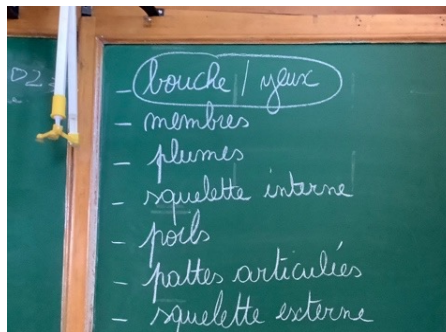 D2
- bouche / yeux
- membres
- plumes
- squelette interne
- poils
- pattes articulées
- squelette externe